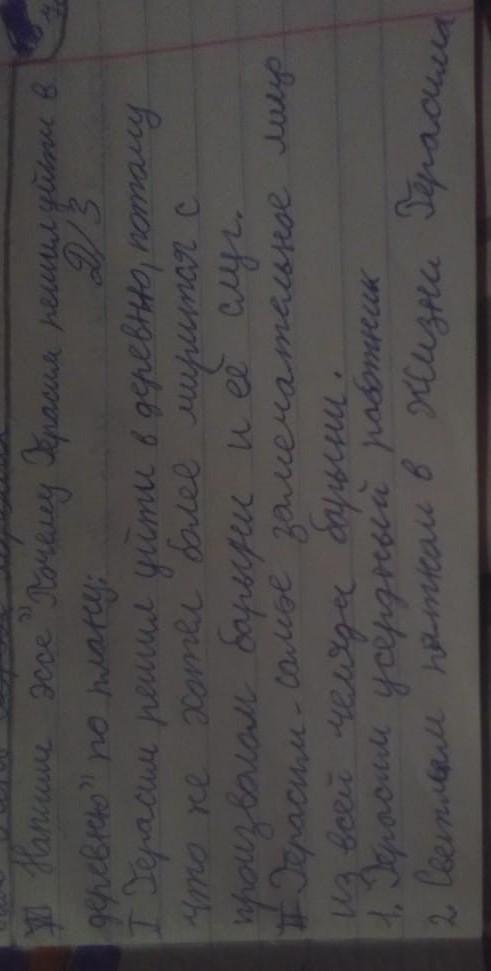 VII Напиши эссе "Почему Герасим решил уйти в
деревню" по плану: Д/З
I Герасим решил уйти в деревню, потому
что не хотел более мирится с
произволом барыни и её слуг.
II Герасим - самое замечательное лицо
из всей челяди барыни.
1. Герасим усердный работник
2 Светлым пятном в жизни Герасима